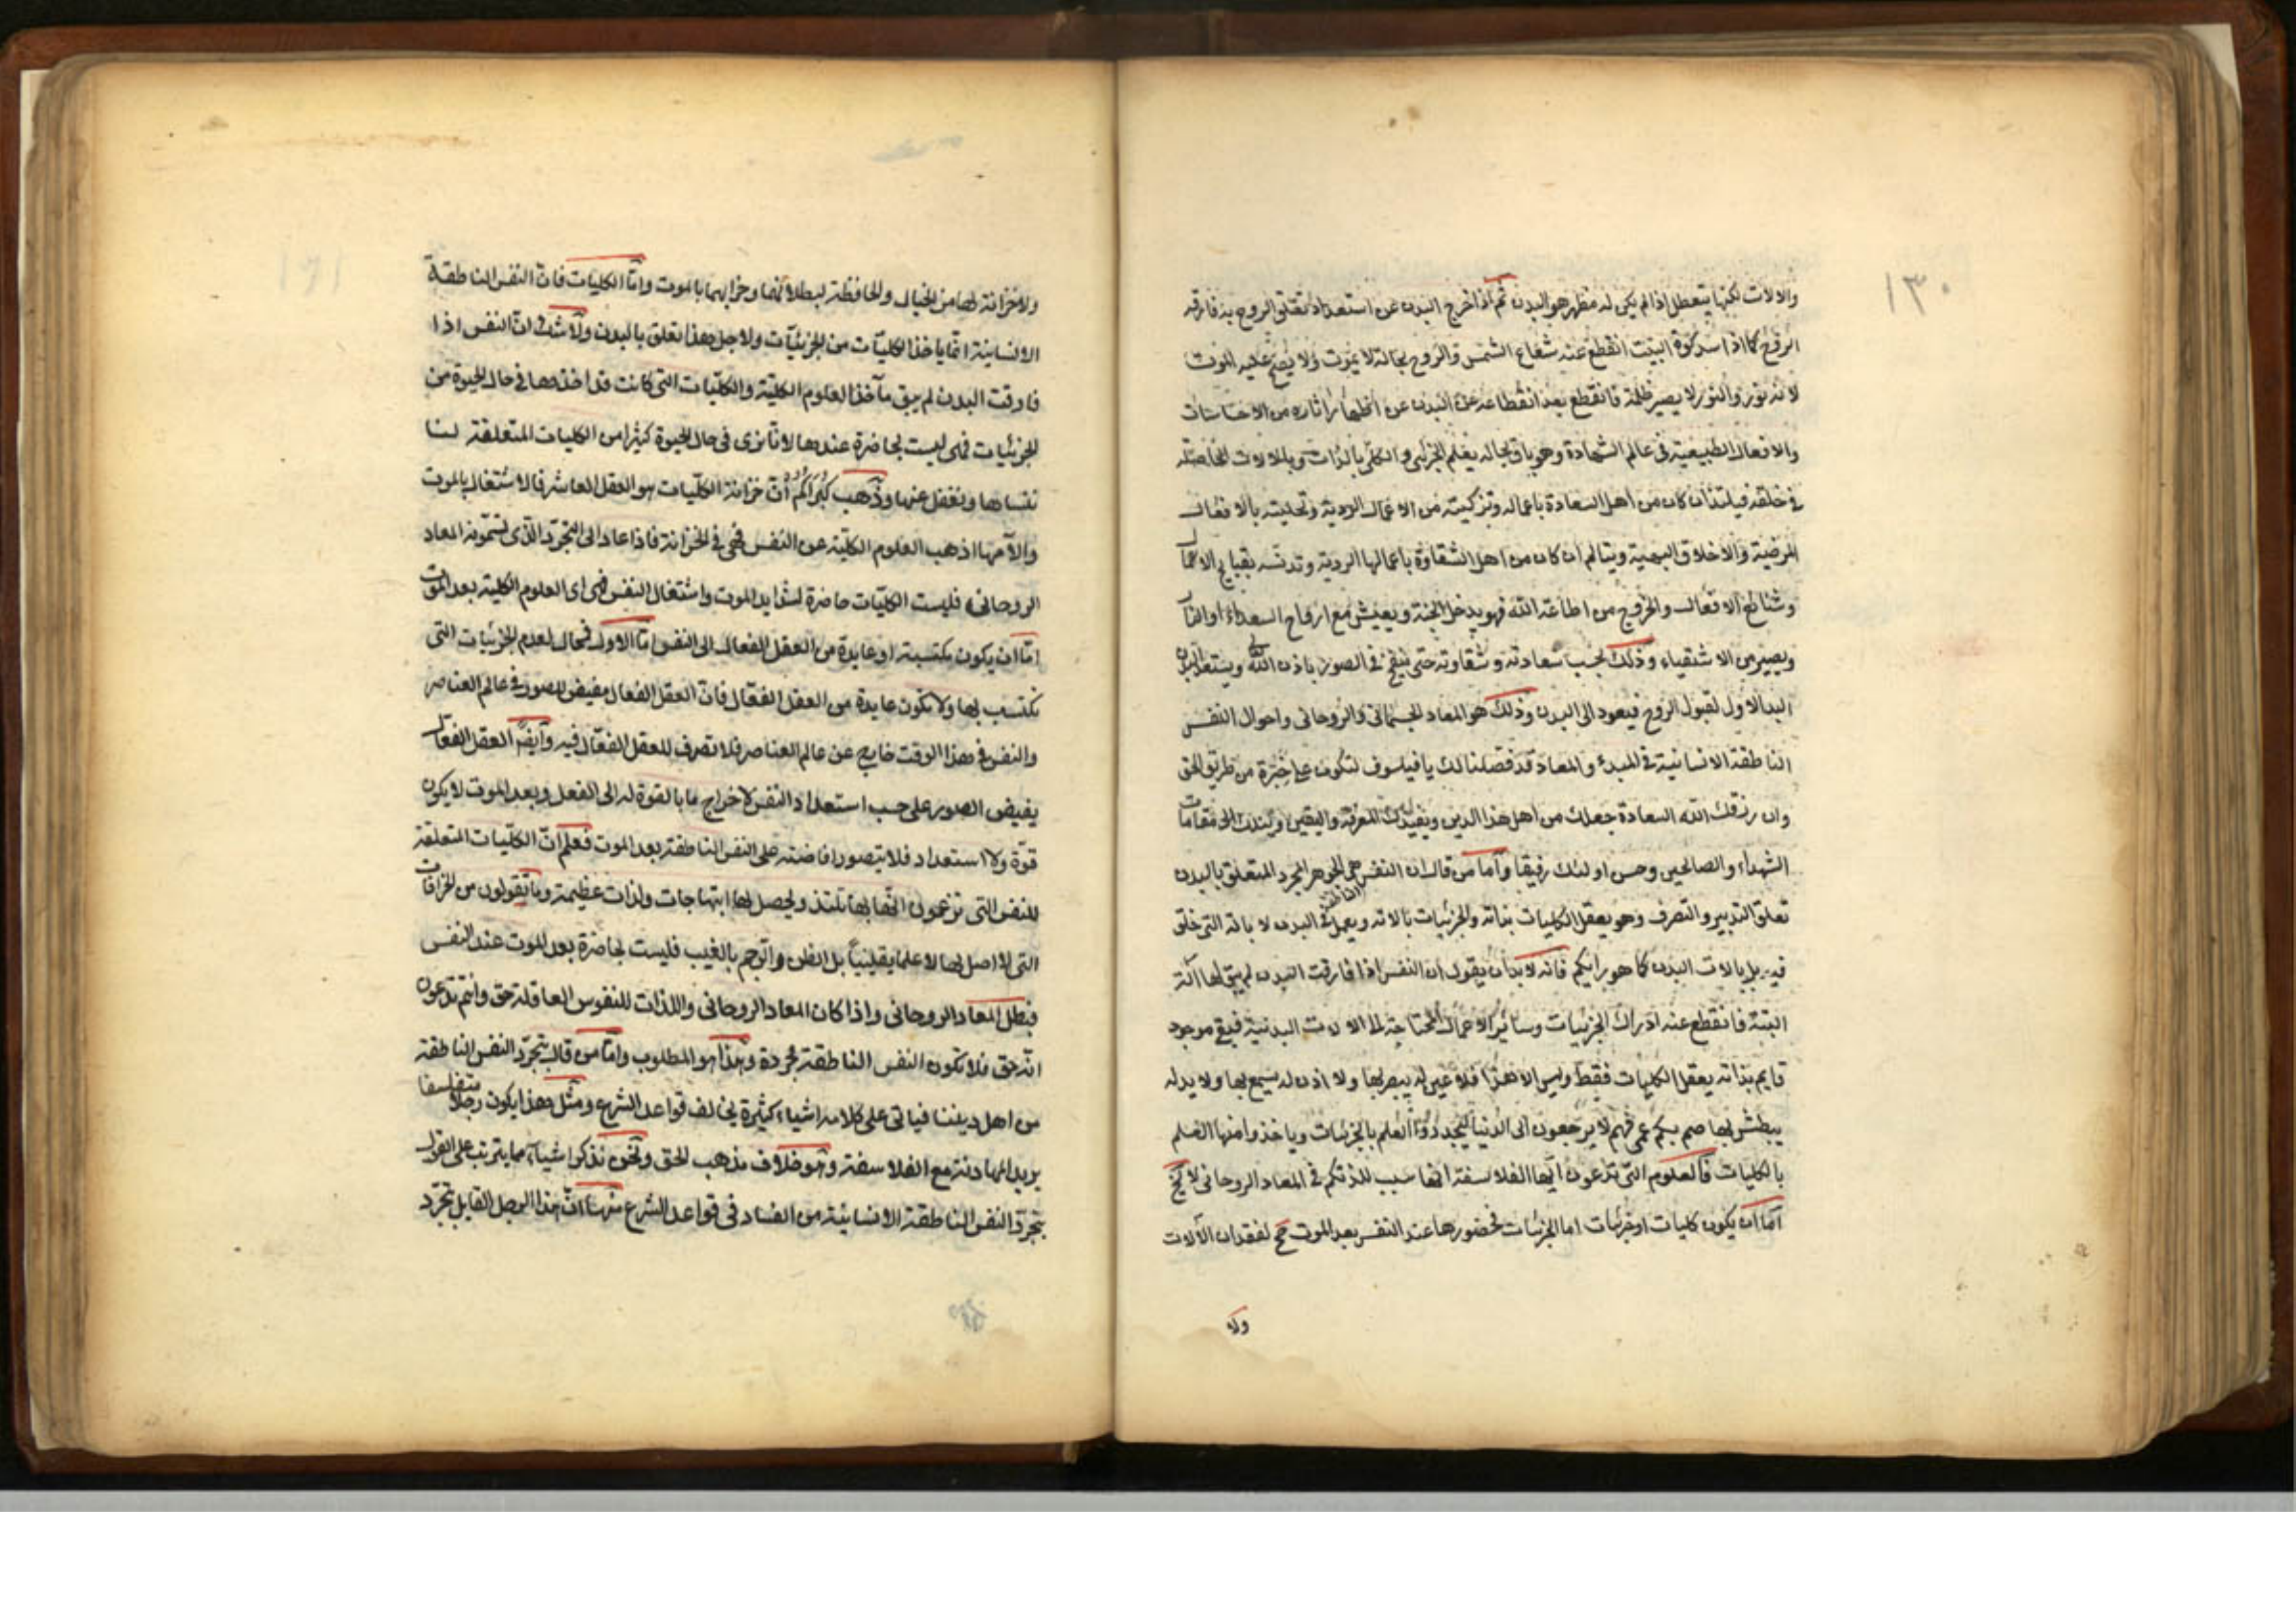 ١٣٠
والالات لكنها يتعطل اذا لم يكن له مظهر هو البدن ثم اذا خرج البدن عن استعداد تعلق الروح به فارقه
الروح كما اذا انسد كوة البيت انقطع عنه شعاع الشمس والروح بحاله لا يموت ولا يصح عليه الموت
لانه نور والنور لا يصير ظلمة فانقطع بعد انقطاعه عن البدن عن اظهار اثاره من الاحساسات
والافعال الطبيعية في عالم الشهادة وهو باق بحاله يعلم الجزئى والكلى بالذات وبالالات الخاصة له
في خلقه فيلتذ ان كان من اهل السعادة باعماله وتزكيته من الاعمال الردية وتحليته بالافعال
المرضية والاخلاق البهية ويتالم ان كان من اهل الشقاوة باعمالها الردية وتدنسه بقبايح الاعمال
وشنائع الافعال والخروج من اطاعة الله فهو يدخل الجنة ويعيش مع ارواح السعداء او النار
ويصير من الاشقياء وذلك بحسب سعادته وشقاوته حتى ينفخ في الصور باذن الله ويستعد البدن
البدالاول لقبول الروح فيعود الى البدن وذلك هو المعاد الجسمانى والروحانى واحوال النفس
الناطقة الانسانية في المبدء والمعاد قد فصلنا لك يا فيلسوف لتكون على خبرة من طريق الحق
وان رزقك الله السعادة جعلك من اهل هذا الدين ويفيدك المعرفة واليقين مقامات
الشهداء والصالحين وحسن اولئك رفيقا واما من قال ان النفس الناطقة هى الجوهر المجرد المتعلق بالبدن
تعلق التدبير والتصرف وهو يعقل الكليات بذاته والجزئيات بالاته ويعمل في البدن لا بالة التى خلق
فيه بل بالات البدن كما هو رايكم فانه لابد ان يقول ان النفس اذا فارقت البدن لم يبق لها آلة
البتة فانقطع عنه ادراك الجزئيات وسائر الاعمال المحتاجة الى الالات البدنية فبقى موجود
قايم بذاته يعقل الكليات فقط وليس الا هذا فلا عين له يبصر بها ولا اذن له يسمع بها ولا يد له
يبطش بها صم بكم عمى فهم لا يرجعون الى الدنيا ليجددوا العلم بالجزئيات وياخذوا منها العلم
بالكليات فالعلوم التى تدعون ايها الفلاسفة انها سبب للذتكم في المعاد الروحانى لا يخ
اما ان يكون كليات او جزئيات اما الجزئيات فحضورها عند النفس بعد الموت مح لفقدان الآلات
ولا
ولا خزانة لها من الخيال والحافظة لبطلانهما وخرابهما بالموت واما الكليات فان النفس الناطقة
الانسانية انما ياخذ الكليات من الجزئيات ولاجل هذا تعلق بالبدن ولا شك ان النفس اذا
فارقت البدن لم يبق مآخذ العلوم الكلية والكليات التى كانت قد اخذها في حال الحيوة من
الجزئيات فهى ليست بحاضرة عندها لانا نرى في حال الحيوة كثيرا من الكليات المتعلقة لنا
ننساها ونغفل عنها وذهب كبراكم ان خزانة الكليات هو العقل العاشر فالاشتغال بالموت
والآمها اذهب العلوم الكلية عن النفس فهى في الخزانة فاذا عاد الى التجرد الذى تسمونه المعاد
الروحانى فليست الكليات حاضرة لشدايد الموت واشتغال النفس فهى اى العلوم الكلية بعد الموت
اما ان يكون مكتسبة او عايدة من العقل الفعال الى النفس اما الاول فمحال لعدم الجزئيات التى
تكتسب بها ولا تكون عايدة من العقل الفعال فان العقل الفعال مفيض الصور في عالم العناصر
والنفس في هذا الوقت خارج عن عالم العناصر فلا تصرف للعقل الفعال فيه وايضا العقل الفعال
يفيض الصور على حسب استعداد النفس لاخراج ما بالقوة له الى الفعل وبعد الموت لا يكون
قوة ولا استعداد فلا يتصور افاضته على النفس الناطقة بعد الموت فعلم ان الكليات المتعلقة
للنفس التى تزعمون انها بها تلتذ ويحصل لها ابتهاجات ولذات عظيمة وما تقولون من الخرافات
التى لا اصل لها لا علما يقينيا بل الظن والوهم بالغيب فليست بحاضرة بعد الموت عند النفس
فبطل المعاد الروحانى واذا كان المعاد الروحانى واللذات للنفوس العاقلة حق وانتم تدعون
انه حق فلا تكون النفس الناطقة مجردة وهذا هو المطلوب واما من قال بتجرد النفس الناطقة
من اهل ديننا فياتى على كلامه اشياء كثيرة يخالف قواعد الشرع ومثل هذا يكون رجلا متفلسفا
يريد المهادنة مع الفلاسفة وهو خلاف مذهب الحق ونحن نذكر اشياء مما يترتب على القول
بتجرد النفس الناطقة الانسانية من الفساد في قواعد الشرع منها ان هذا الرجل القايل بتجرد